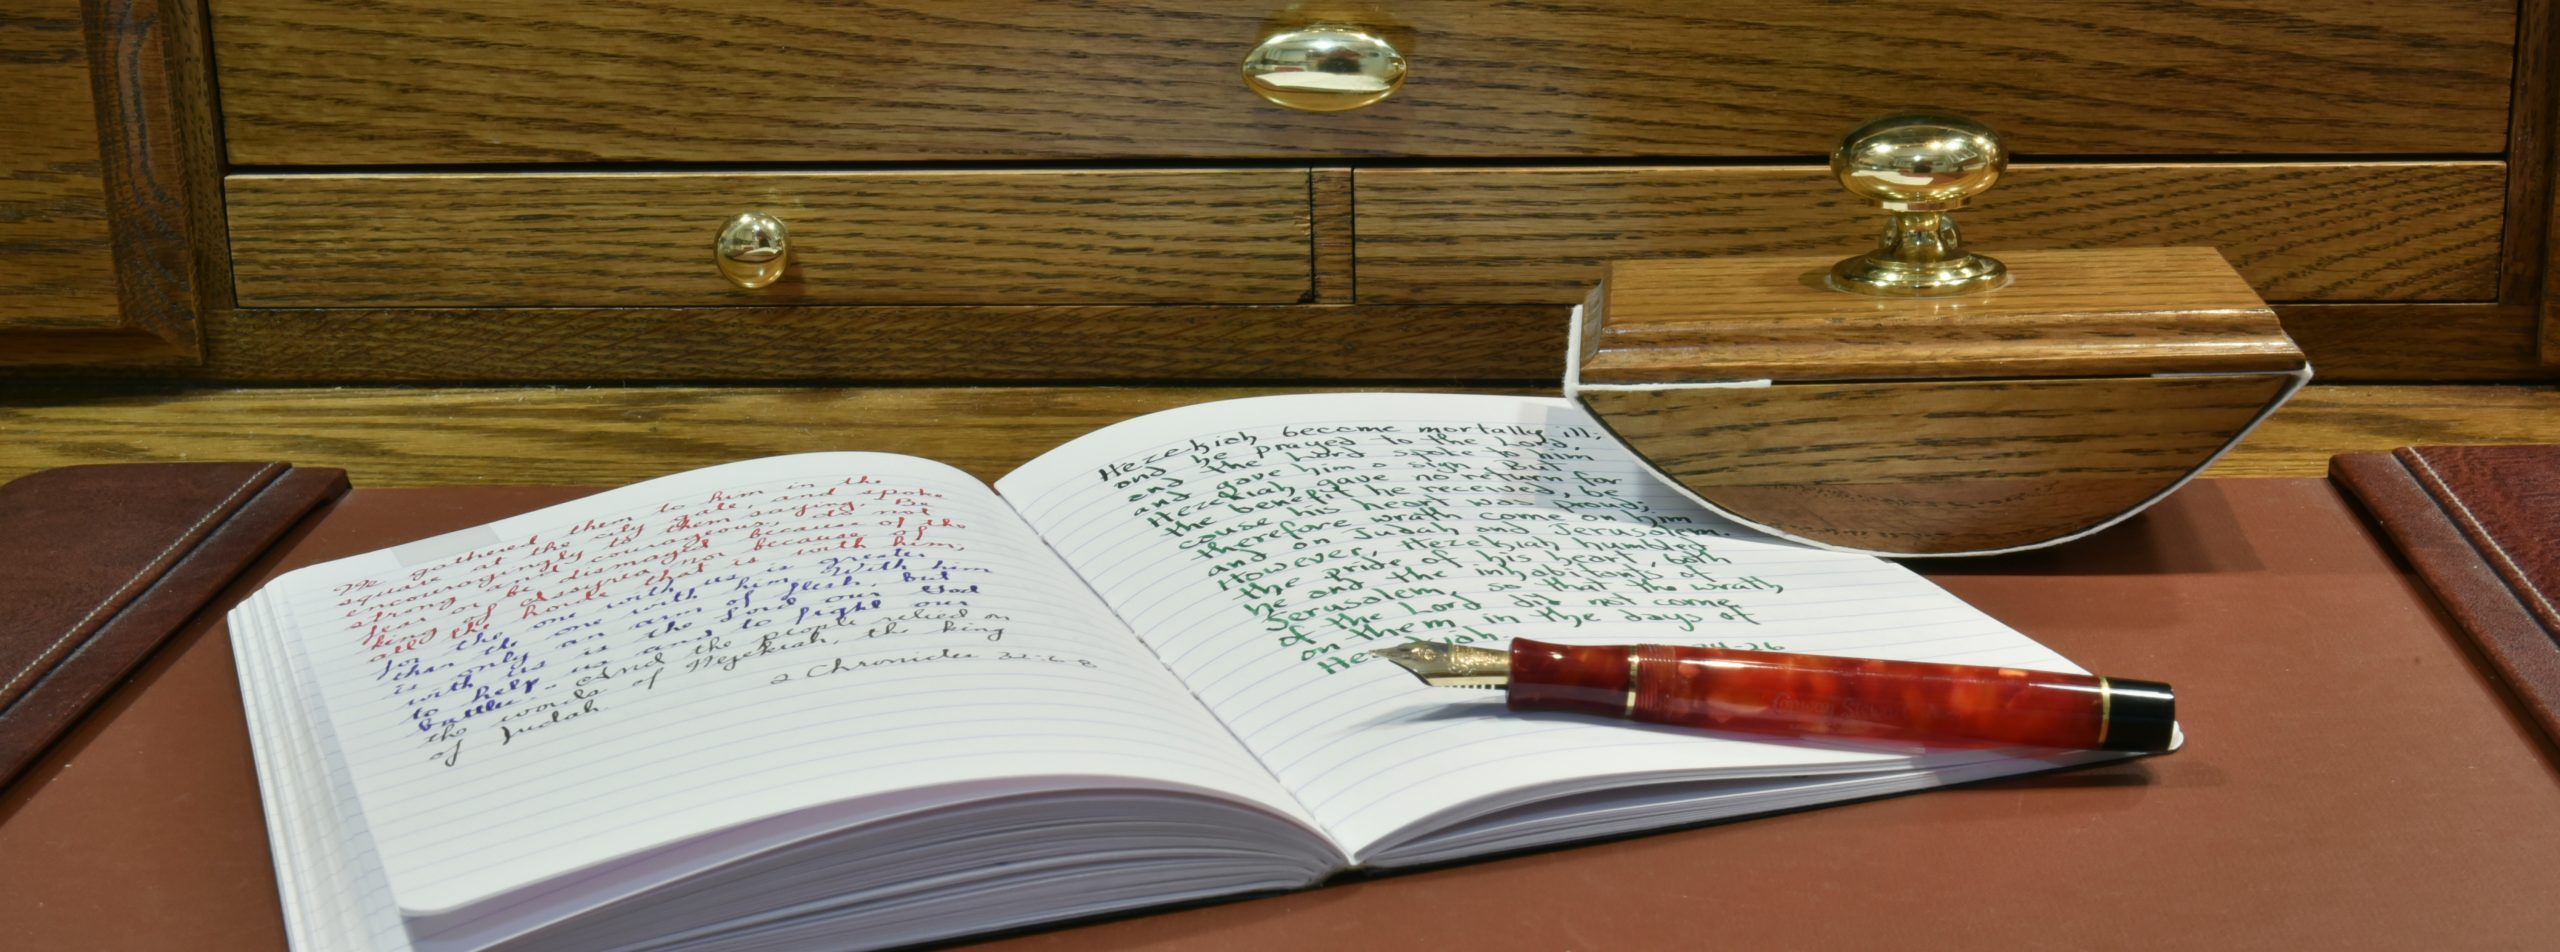 He gathered them to him in the
square at the city gate, and spoke
encouragingly to them saying, Be
strong and courageous, do not
fear or be dismayed because of the
king of Assyria nor because of
all the horde that is with him,
for the one with us is greater
than the one with him. With him
is only an arm of flesh, but
with us is the Lord our God
to help us and to fight our
battles. And the people relied on
the words of Hezekiah, the king
of Judah.
2 Chronicles 32:6-8
Hezekiah become mortally ill;
and he prayed to the Lord,
and the Lord spoke to him
and gave him a sign. But
Hezekiah gave no return for
the benefit he received, be
cause his heart was proud;
therefore wrath come on him
and on Judah and Jerusalem.
However, Hezekiah humbled
the pride of his heart, both
he and the inhabitants of
Jerusalem, so that the wrath
of the Lord did not come
on them in the days of
Hezekiah.
24-26
Conway Stewart